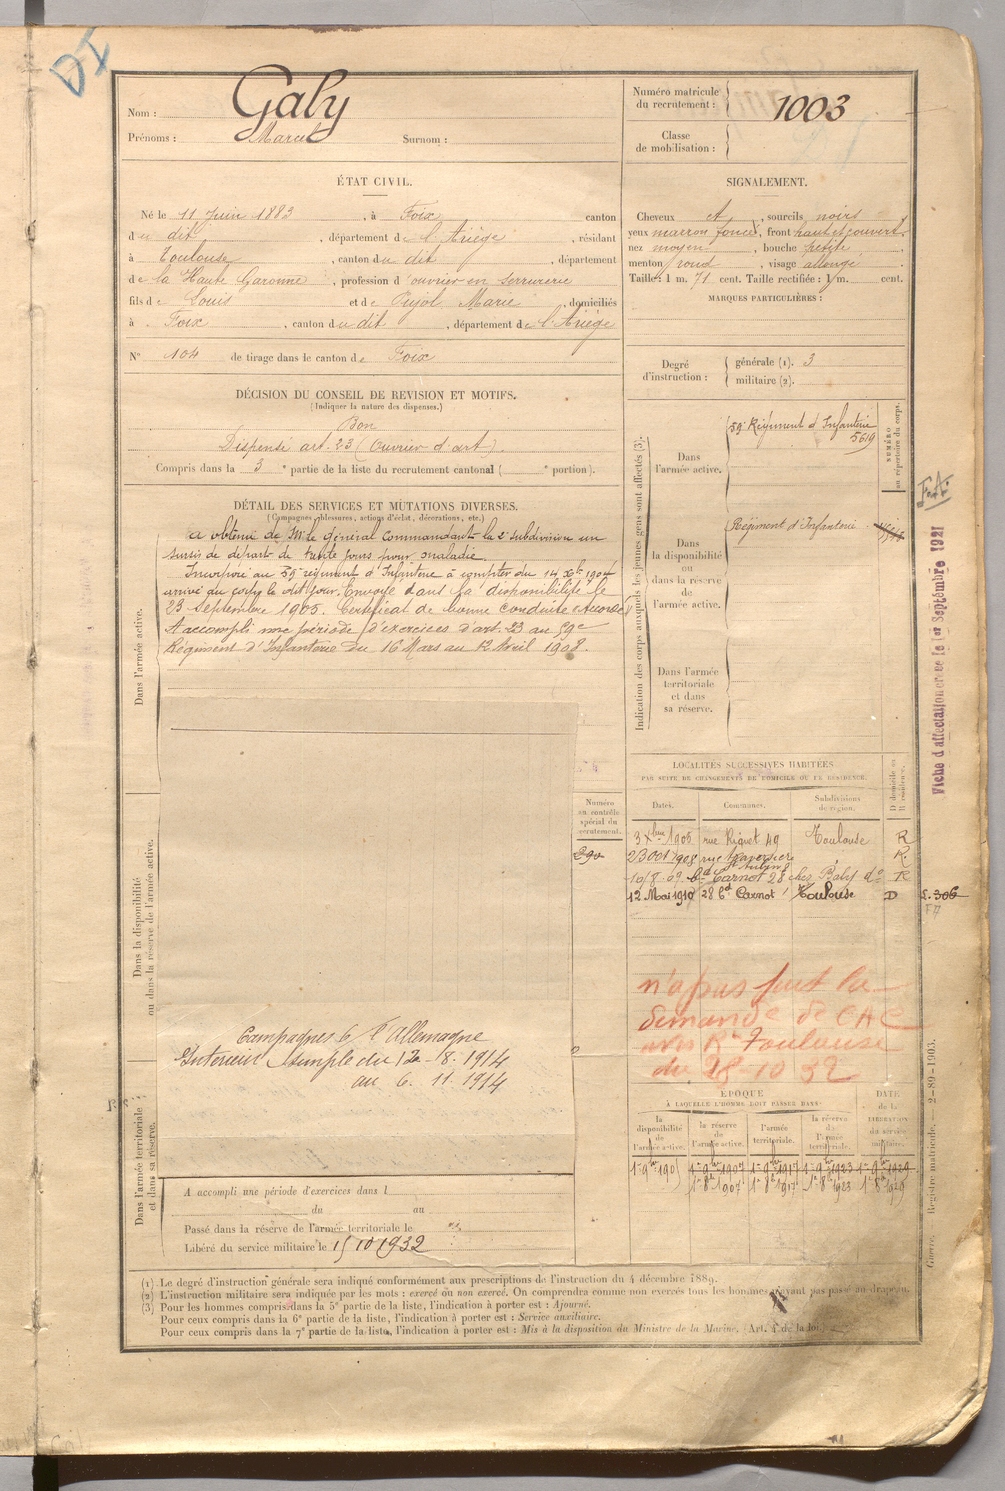 DI
Nom : Galy
Prénoms : Marcel Surnom :
Numéro matricule du recrutement : 1003
Classe de mobilisation :
ÉTAT CIVIL.
Né le 11 Juin 1883, à Foix canton
du dit, département de l'Ariège, résidant
à Toulouse, canton du dit, département
de la Haute Garonne, profession d'ouvrier en serrurerie
fils de Louis et de Pujol Marie, domiciliés
à Foix, canton du dit, département de l'Ariège
N° 104 de tirage dans le canton de Foix
SIGNALEMENT.
Cheveux et, sourcils noirs
yeux marron foncé, front haut et couvert
nez moyen, bouche petite
menton rond, visage allongé
Taille : 1 m. 71 cent. Taille rectifiée : 1 m. cent.
MARQUES PARTICULIÈRES :
Degré d'instruction : générale (1). 3
militaire (2).
DÉCISION DU CONSEIL DE REVISION ET MOTIFS.
(Indiquer la nature des dispenses.)
Bon
Dispensé art. 23 (Ouvrier d'art)
Compris dans la 3e partie de la liste du recrutement cantonal ( e portion).
DÉTAIL DES SERVICES ET MUTATIONS DIVERSES.
(Campagnes, blessures, actions d'éclat, décorations, etc.)
Dans l'armée active.
a obtenu de Mr le général Commandant la 2e subdivision un
sursis de départ de trente jours pour maladie.
Incorporé au 59 régiment d'Infanterie à compter du 14 Xbre 1904
arrivé au corps le dit jour. Envoyé dans la disponibilité le
23 Septembre 1905. Certificat de bonne conduite Accordé
A accompli une période d'exercices d'art. 23 au 59e
Régiment d'Infanterie du 16 Mars au 12 Avril 1908.
Indication des corps auxquels les jeunes gens sont affectés (3).
NUMÉRO au répertoire du corps.
Dans l'armée active.
59e Régiment d'Infanterie
5619
Dans la disponibilité ou dans la réserve de l'armée active.
Régiment d'Infanterie
Dans l'armée territoriale et dans sa réserve.
F.A.
Fiche d'affectation créée le 1er Septembre 1921
Dans la disponibilité ou dans la réserve de l'armée active.
Numéro au contrôle spécial du recrutement.
290
LOCALITÉS SUCCESSIVES HABITÉES
PAR SUITE DE CHANGEMENTS DE DOMICILE OU DE RÉSIDENCE.
Dates. Communes. Subdivisions de région. D domicile ou R résidence.
3 Xbre 1905 rue Riquet 49 Toulouse R
23 Oct 1908 rue Traversière St Aubin 8 R
10/8.09 Bd Carnot 28 chez Baby do R
12 Mai 1910 28 Bd Carnot Toulouse D
S. 306
n'a pas fait la
demande de CAC
avis Rt Toulouse
du 28-10 32
Campagnes C/ l'Allemagne
Intérieur simple du 12-8-1914
au 6. 11. 1914
Dans l'armée territoriale et dans sa réserve.
ÉPOQUE
À LAQUELLE L'HOMME DOIT PASSER DANS
la disponibilité de l'armée active. la réserve de l'armée active. l'armée territoriale. la réserve de l'armée territoriale. DATE de la LIBÉRATION du service militaire.
1er 9bre 1907 1er 9bre 1917 1er 9bre 1923 1er 9bre 1929
1er 8bre 1907 1er 8bre 1917 1er 8bre 1923 1er 8bre 1929
A accompli une période d'exercices dans l
du au
Passé dans la réserve de l'armée territoriale le
Libéré du service militaire le 15 10 1932
(1) Le degré d'instruction générale sera indiqué conformément aux prescriptions de l'instruction du 4 décembre 1889.
(2) L'instruction militaire sera indiquée par les mots : exercé ou non exercé. On comprendra comme non exercés tous les hommes n'ayant pas passé au drapeau.
(3) Pour les hommes compris dans la 5e partie de la liste, l'indication à porter est : Ajourné.
Pour ceux compris dans la 6e partie de la liste, l'indication à porter est : Service auxiliaire.
Pour ceux compris dans la 7e partie de la liste, l'indication à porter est : Mis à la disposition du Ministre de la Marine. (Art. 4 de la loi.)
Guerre. Registre matricule. — 2-89-1903.